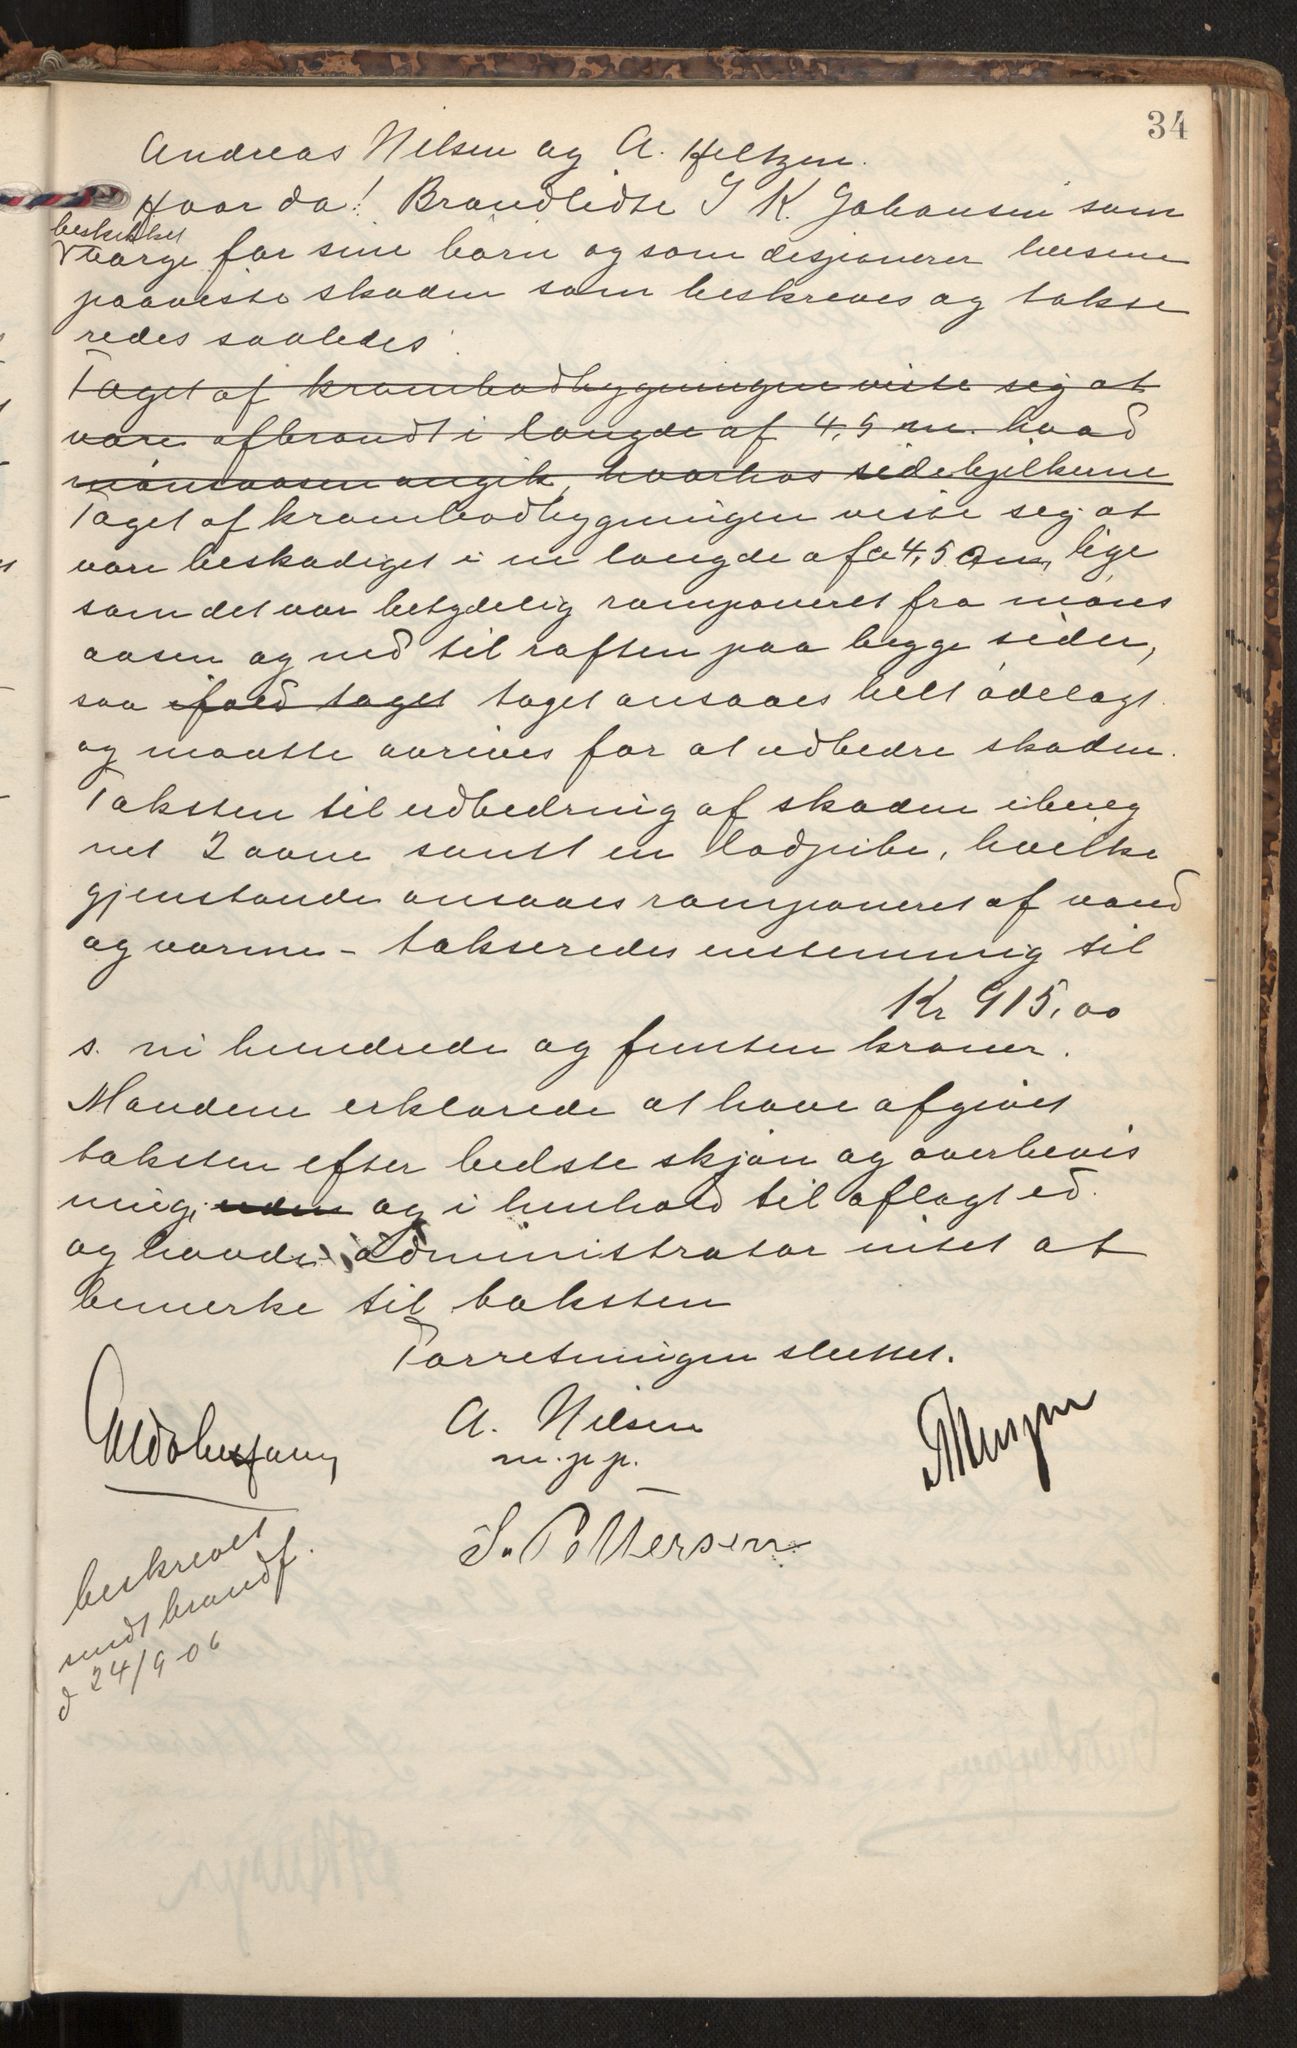 34
Andreas Nilsen og A. Heltzen.
Hvor da! Brandlidte I K. Johansen som
beskikket
værge for sine børn og som desponerer husene
paaviste skaden som beskreves og takse
redes saaledes:
Taget af krambodbygningen viste sig at
være afbrændt i længde af 4,5 m. hvad
mønsaasen angik, hvorhos sidebjelkerne
Taget af krambodbygningen viste sig at
være beskadiget i en længde af ca 4,5 m, lige
som det var betydelig ramponeret fra møns
aasen og ned til raften paa begge sider,
saa ifald taget taget ansaaes helt ødelagt
og maatte avrives for at udbedre skaden.
Taksten til udbedring af skaden ibereg
net 2 ovne samt en ladpibe, hvilke
gjenstande ansaaes ramponeret af vand
og varme - takseredes enstemmig til
Kr 915,00
s. ni hundrede og femten kroner.
Mændene erklærede at have afgivet
taksten efter bedste skjøn og overbevis
ning, uden og i henhold til aflagt ed.
og havde administrator intet at
bemerke til taksten
Forretningen sluttet.
A. Nilsen
m.p.p.
S. Pettersen
beskrevet
sendt brandf.
d 24/9-06